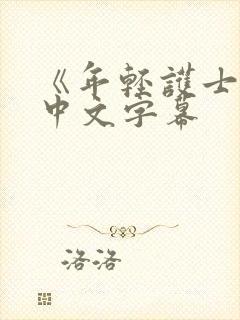 《年輕護士
中文字幕
洛洛